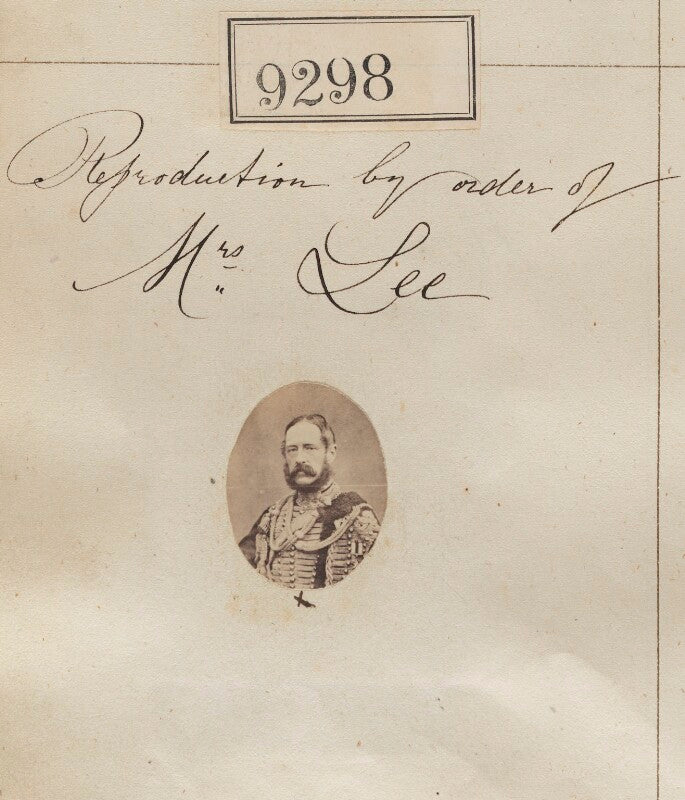 9298
Reproduction by order of
Mrs Lee